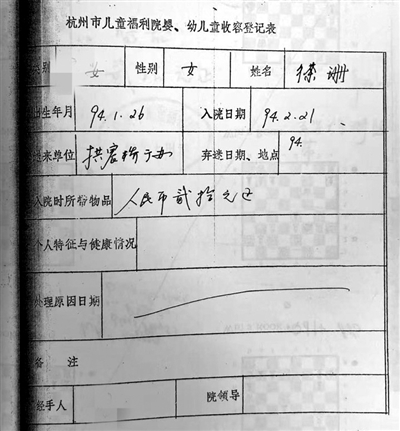 杭州市儿童福利院婴、幼儿童收容登记表
类别 女 性别 女 姓名 徐珊
出生年月 94.1.26 入院日期 94.2.21
送来单位 拱宸桥 办 弃遗日期、地点 94.
入院时所带物品 人民币贰拾元正
个人特征与健康情况
处理原因日期
备注
经手人 院领导